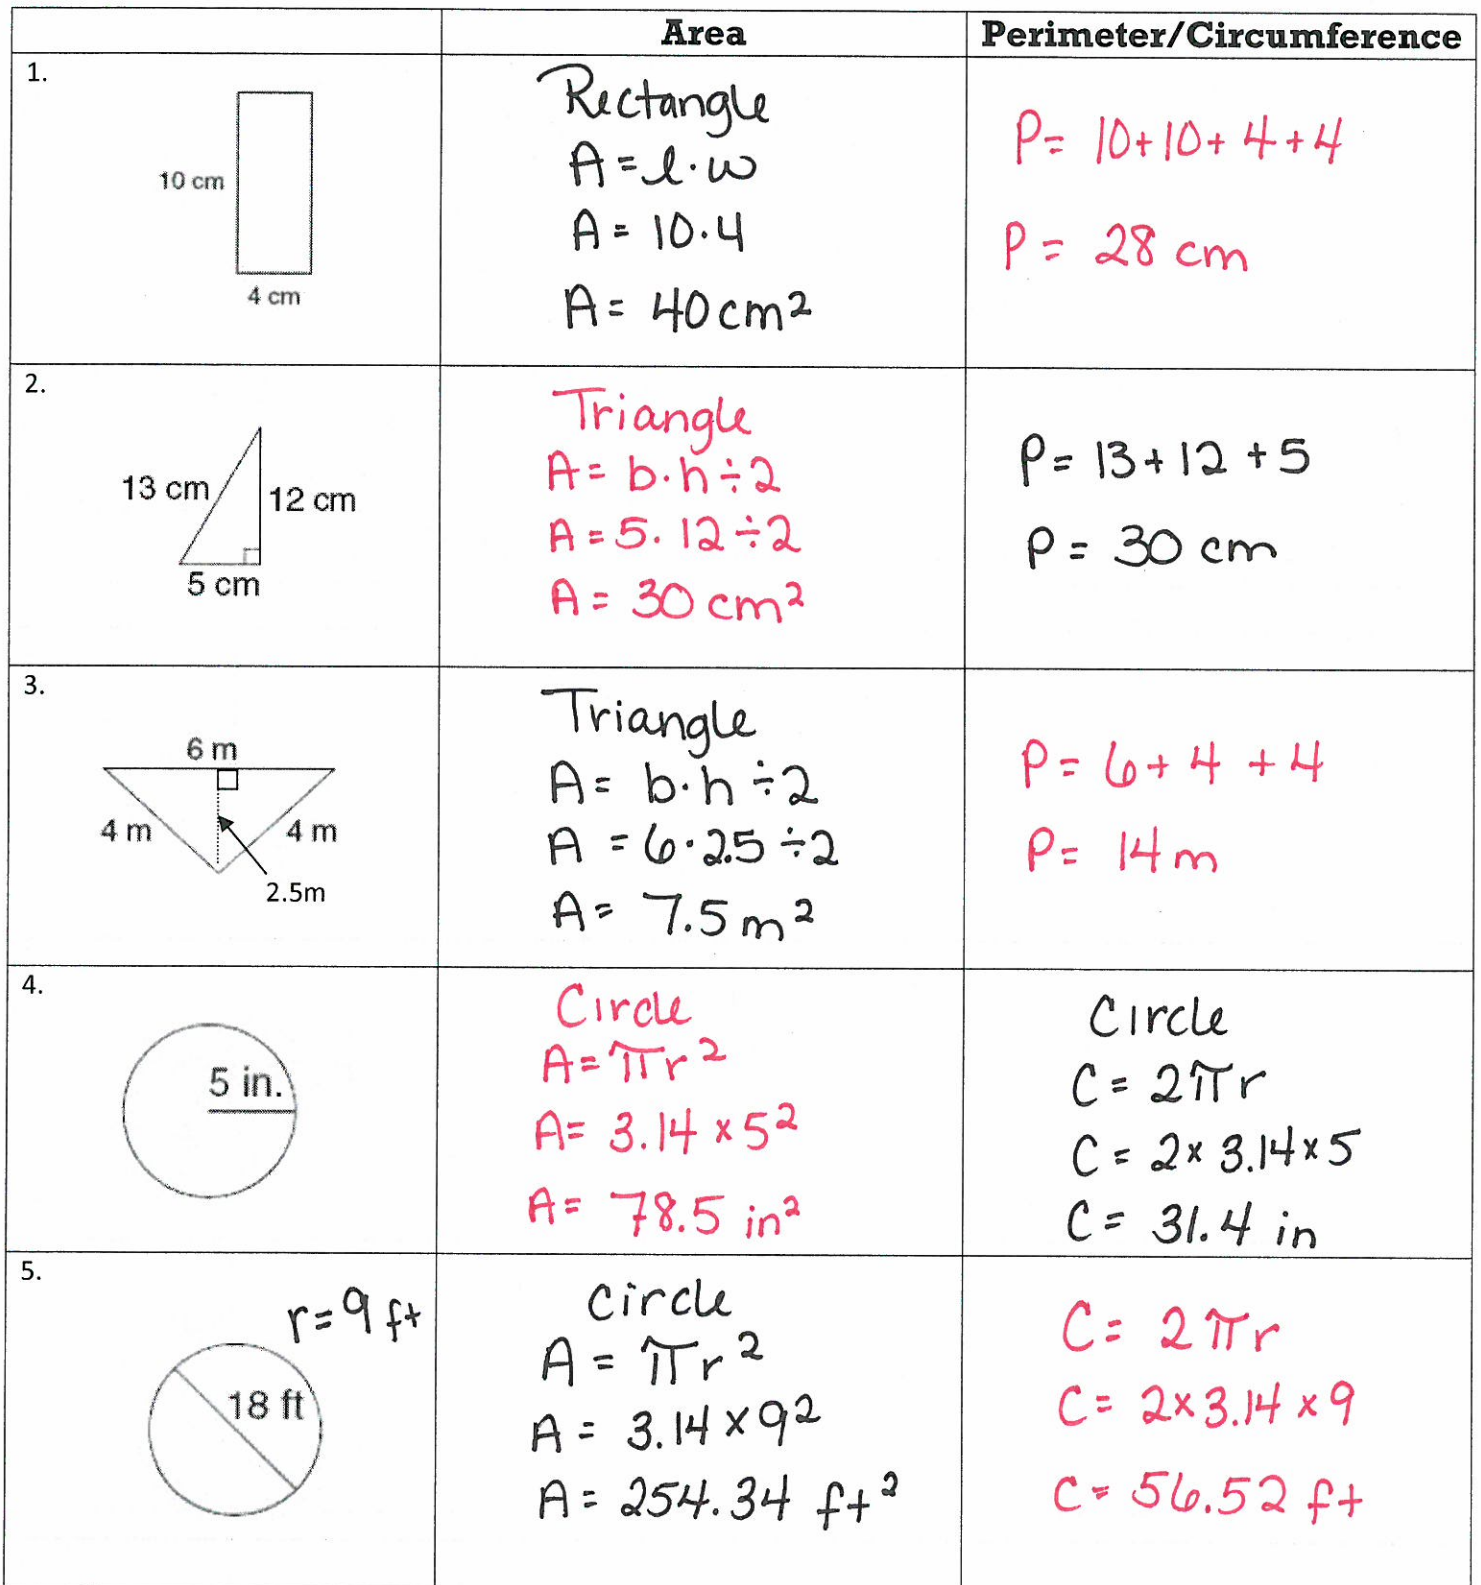 Area
Perimeter/Circumference
1.
10 cm
4 cm
Rectangle
A = l·w
A = 10·4
A = 40 cm²
P = 10+10+4+4
P = 28 cm
2.
13 cm
12 cm
5 cm
Triangle
A = b·h÷2
A = 5·12÷2
A = 30 cm²
P = 13+12+5
P = 30 cm
3.
6 m
4 m
4 m
2.5m
Triangle
A = b·h÷2
A = 6·2.5÷2
A = 7.5 m²
P = 6+4+4
P = 14 m
4.
5 in.
Circle
A = πr²
A = 3.14×5²
A = 78.5 in²
Circle
C = 2πr
C = 2×3.14×5
C = 31.4 in
5.
r=9 ft
18 ft
Circle
A = πr²
A = 3.14×9²
A = 254.34 ft²
C = 2πr
C = 2×3.14×9
C = 56.52 ft